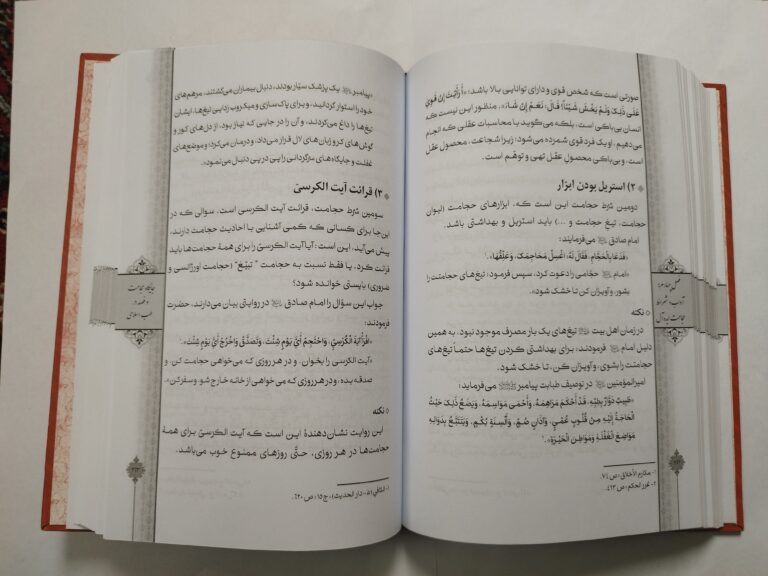 صورتی است که شخص قوی و دارای توانایی بالا باشد؛ «أَرَأَیْتَ إِنْ قَوِیَ
عَلَی ذَلِکَ وَلَمْ یَخَفْ شَیْئاً؟ قَالَ: نَعَمْ إِنْ شَاءَ.»، منظور این نیست که
انسان بی‌باکی است، بلکه می‌گوید با محاسبات عقلی که انجام
می‌دهیم، او یک فرد قوی شمرده می‌شود؛ زیرا شجاعت، محصول عقل
است، و بی‌باکی محصول عقل تهی و توهّم است.
۲) استریل بودن ابزار
دومین شرط حجامت این است که، ابزارهای حجامت (لیوان
حجامت، تیغ حجامت و ...) باید استریل و بهداشتی باشد.
امام صادق می‌فرمایند:
«فَدَعَا بِالْحَجَّامِ، فَقَالَ لَهُ: اغْسِلْ مَحَاجِمَکَ، وَعَلِّقْهَا».۱
«امام حجّامی را دعوت کرد، سپس فرمود: تیغ‌های حجامتت را
بشور، و آویزان کن تا خشک شود».
نکته
در زمان اهل بیت تیغ‌های یک بار مصرف موجود نبود، به همین
دلیل امام فرمودند: برای بهداشتی کردن تیغ‌ها حتماً تیغ‌های
حجامتت را بشوی، و آویزان کن، تا خشک شود.
امیرالمؤمنین در توصیف طبابت پیامبر می‌فرماید:
«طَبِیبٌ دَوَّارٌ بِطِبِّهِ، قَدْ أَحْکَمَ مَرَاهِمَهُ، وَأَحْمَی مَوَاسِمَهُ، وَیَضَعُ ذَلِکَ حَیْثُ
الْحَاجَةُ إِلَیْهِ مِنْ قُلُوبٍ عُمْیٍ، وَآذَانٍ صُمٍّ، وَأَلْسِنَةٍ بُکْمٍ، وَیَتَتَبَّعُ بِدَوَائِهِ
مَوَاضِعَ الْغَفْلَةِ وَمَوَاطِنَ الْحَیْرَةِ».۲
۱- مکارم الأخلاق؛ ص ۷۴.
۲- غرر الحکم؛ ص ۴۱۳.
فصل چهارم:
آداب و شرائط
حجامت ایده‌آل
«پیامبر یک پزشک سیّار بودند، دنبال بیماران می‌گشتند، مرهم‌های
خود را استوار گردانید، و برای پاک‌سازی و میکروب زدایی تیغ‌ها، ایشان
تیغ‌ها را داغ می‌کردند، و آن را در جایی که نیاز بود، از دل‌های کور و
گوش‌های کر و زبان‌های لال قرار می‌داد، و درمان می‌کرد؛ و موضع‌های
غفلت و جایگاه‌های سرگردانی را پی در پی دنبال می‌نمود».
۳) قرائت آیت الکرسیّ
سومین شرط حجامت، قرائت آیت الکرسیّ است. سوالی که در
این‌جا برای کسانی که کمی آشنایی با احادیث حجامت دارند،
پیش می‌آید، این است: آیا آیت الکرسیّ را برای همۀ حجامت‌ها باید
قرائت کرد، یا فقط نسبت به حجامت "تبیّغ" (حجامت اورژانسی و
ضروری) بایستی خوانده شود؟
جواب این سؤال را امام صادق در روایتی بیان می‌دارند، حضرت
فرمودند:
«اقْرَأْ آیَةَ الْکُرْسِیِّ، وَاحْتَجِمْ أَیَّ یَوْمٍ شِئْتَ، وَتَصَدَّقْ وَاخْرُجْ أَیَّ یَوْمٍ شِئْتَ».۱
«آیت الکرسی را بخوان، و در هر روزی که می‌خواهی حجامت کن، و
صدقه بده، و در هر روزی که می‌خواهی از خانه خارج شو، و سفر کن».
نکته
این روایت نشان‌دهندۀ این است که آیت الکرسیّ برای همۀ
حجامت‌ها در هر روزی، حتّی روزهای ممنوع خوب می‌باشد.
۱- الکافي (ط - دار الحدیث)، ج ۱۵؛ ص ۶۲۰.
جایگاه حجامت
و فصد در
طب اسلامی